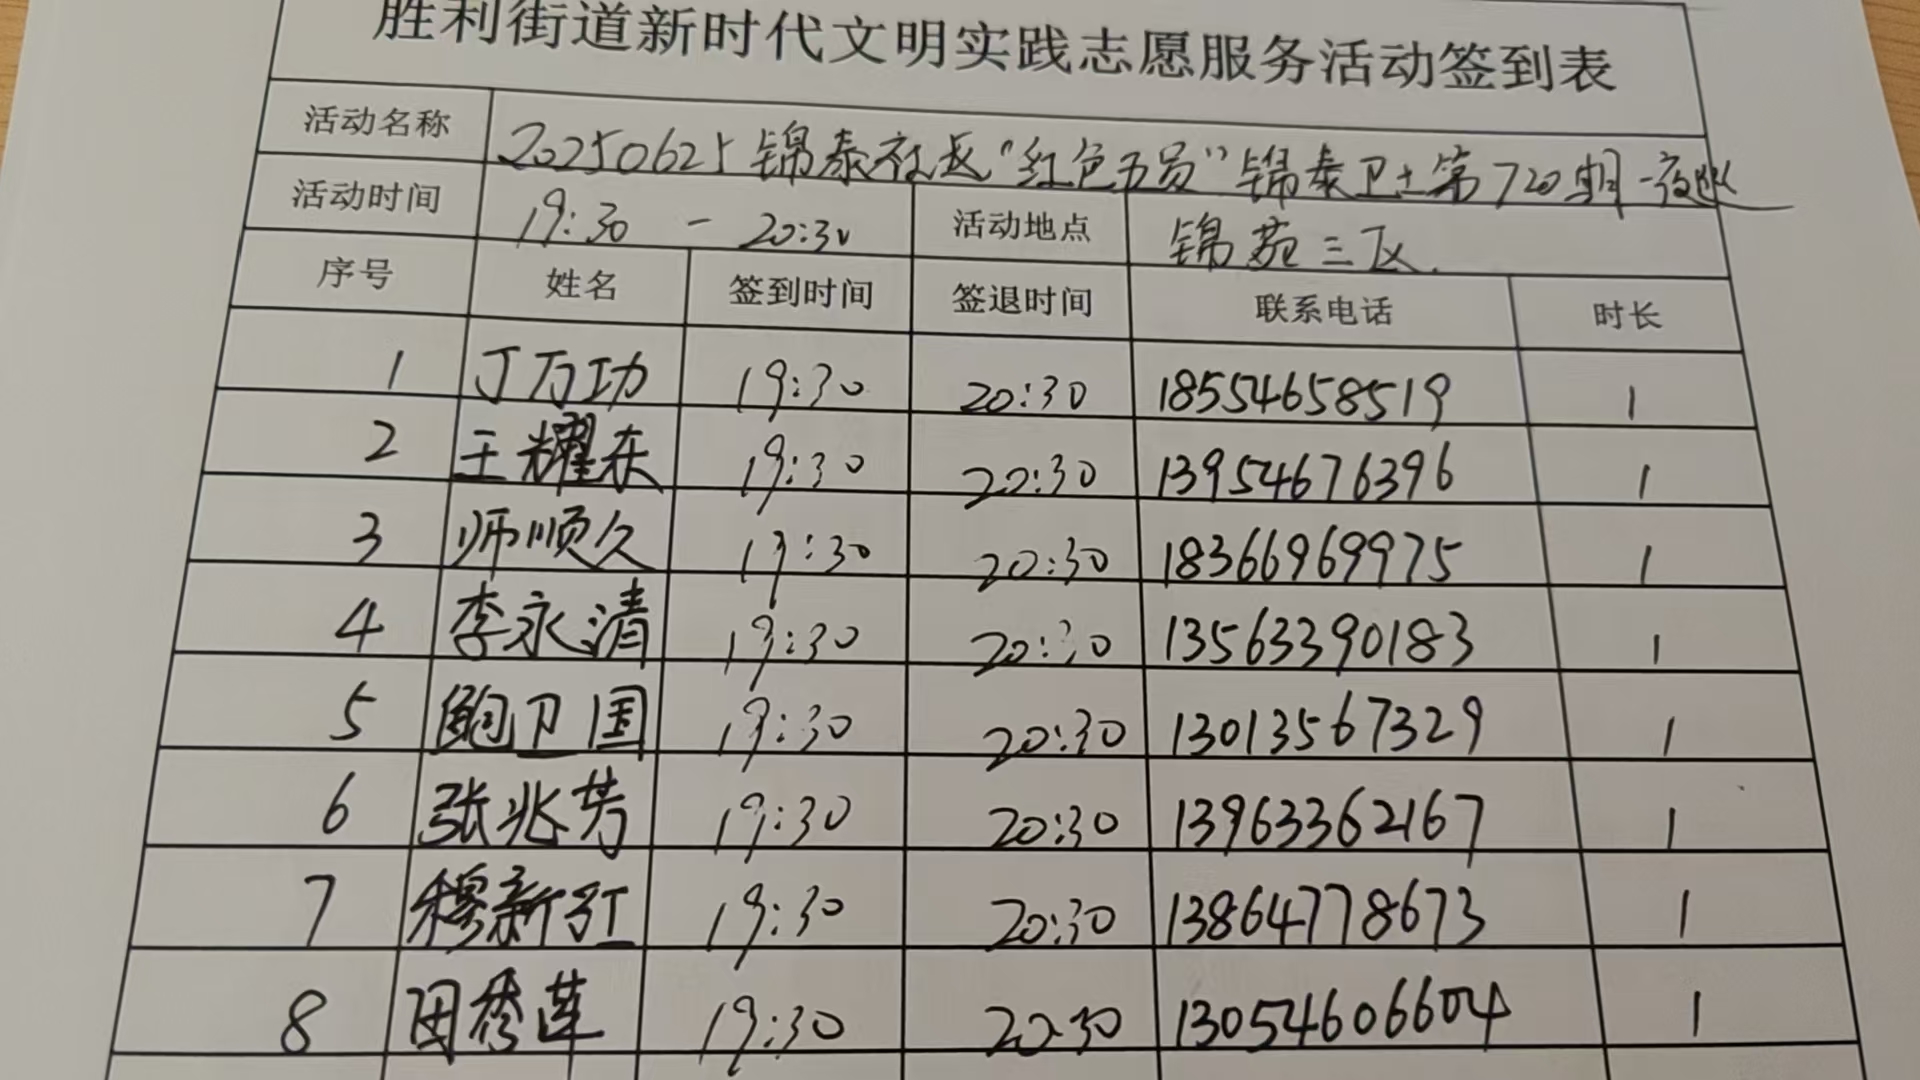 胜利街道新时代文明实践志愿服务活动签到表
活动名称 20250625锦泰社区“红色五员”锦泰卫士第720期-夜巡
活动时间 19:30 - 20:30 活动地点 锦苑三区.
序号 姓名 签到时间 签退时间 联系电话 时长
1 丁万功 19:30 20:30 18554658519 1
2 王耀东 19:30 20:30 13954676396 1
3 师顺久 19:30 20:30 18366969975 1
4 李永清 19:30 20:30 13563390183 1
5 鲍卫国 19:30 20:30 13013567329 1
6 张兆芳 19:30 20:30 13963362167 1
7 穆新红 19:30 20:30 13864778673 1
8 田秀莲 19:30 20:30 13054606604 1